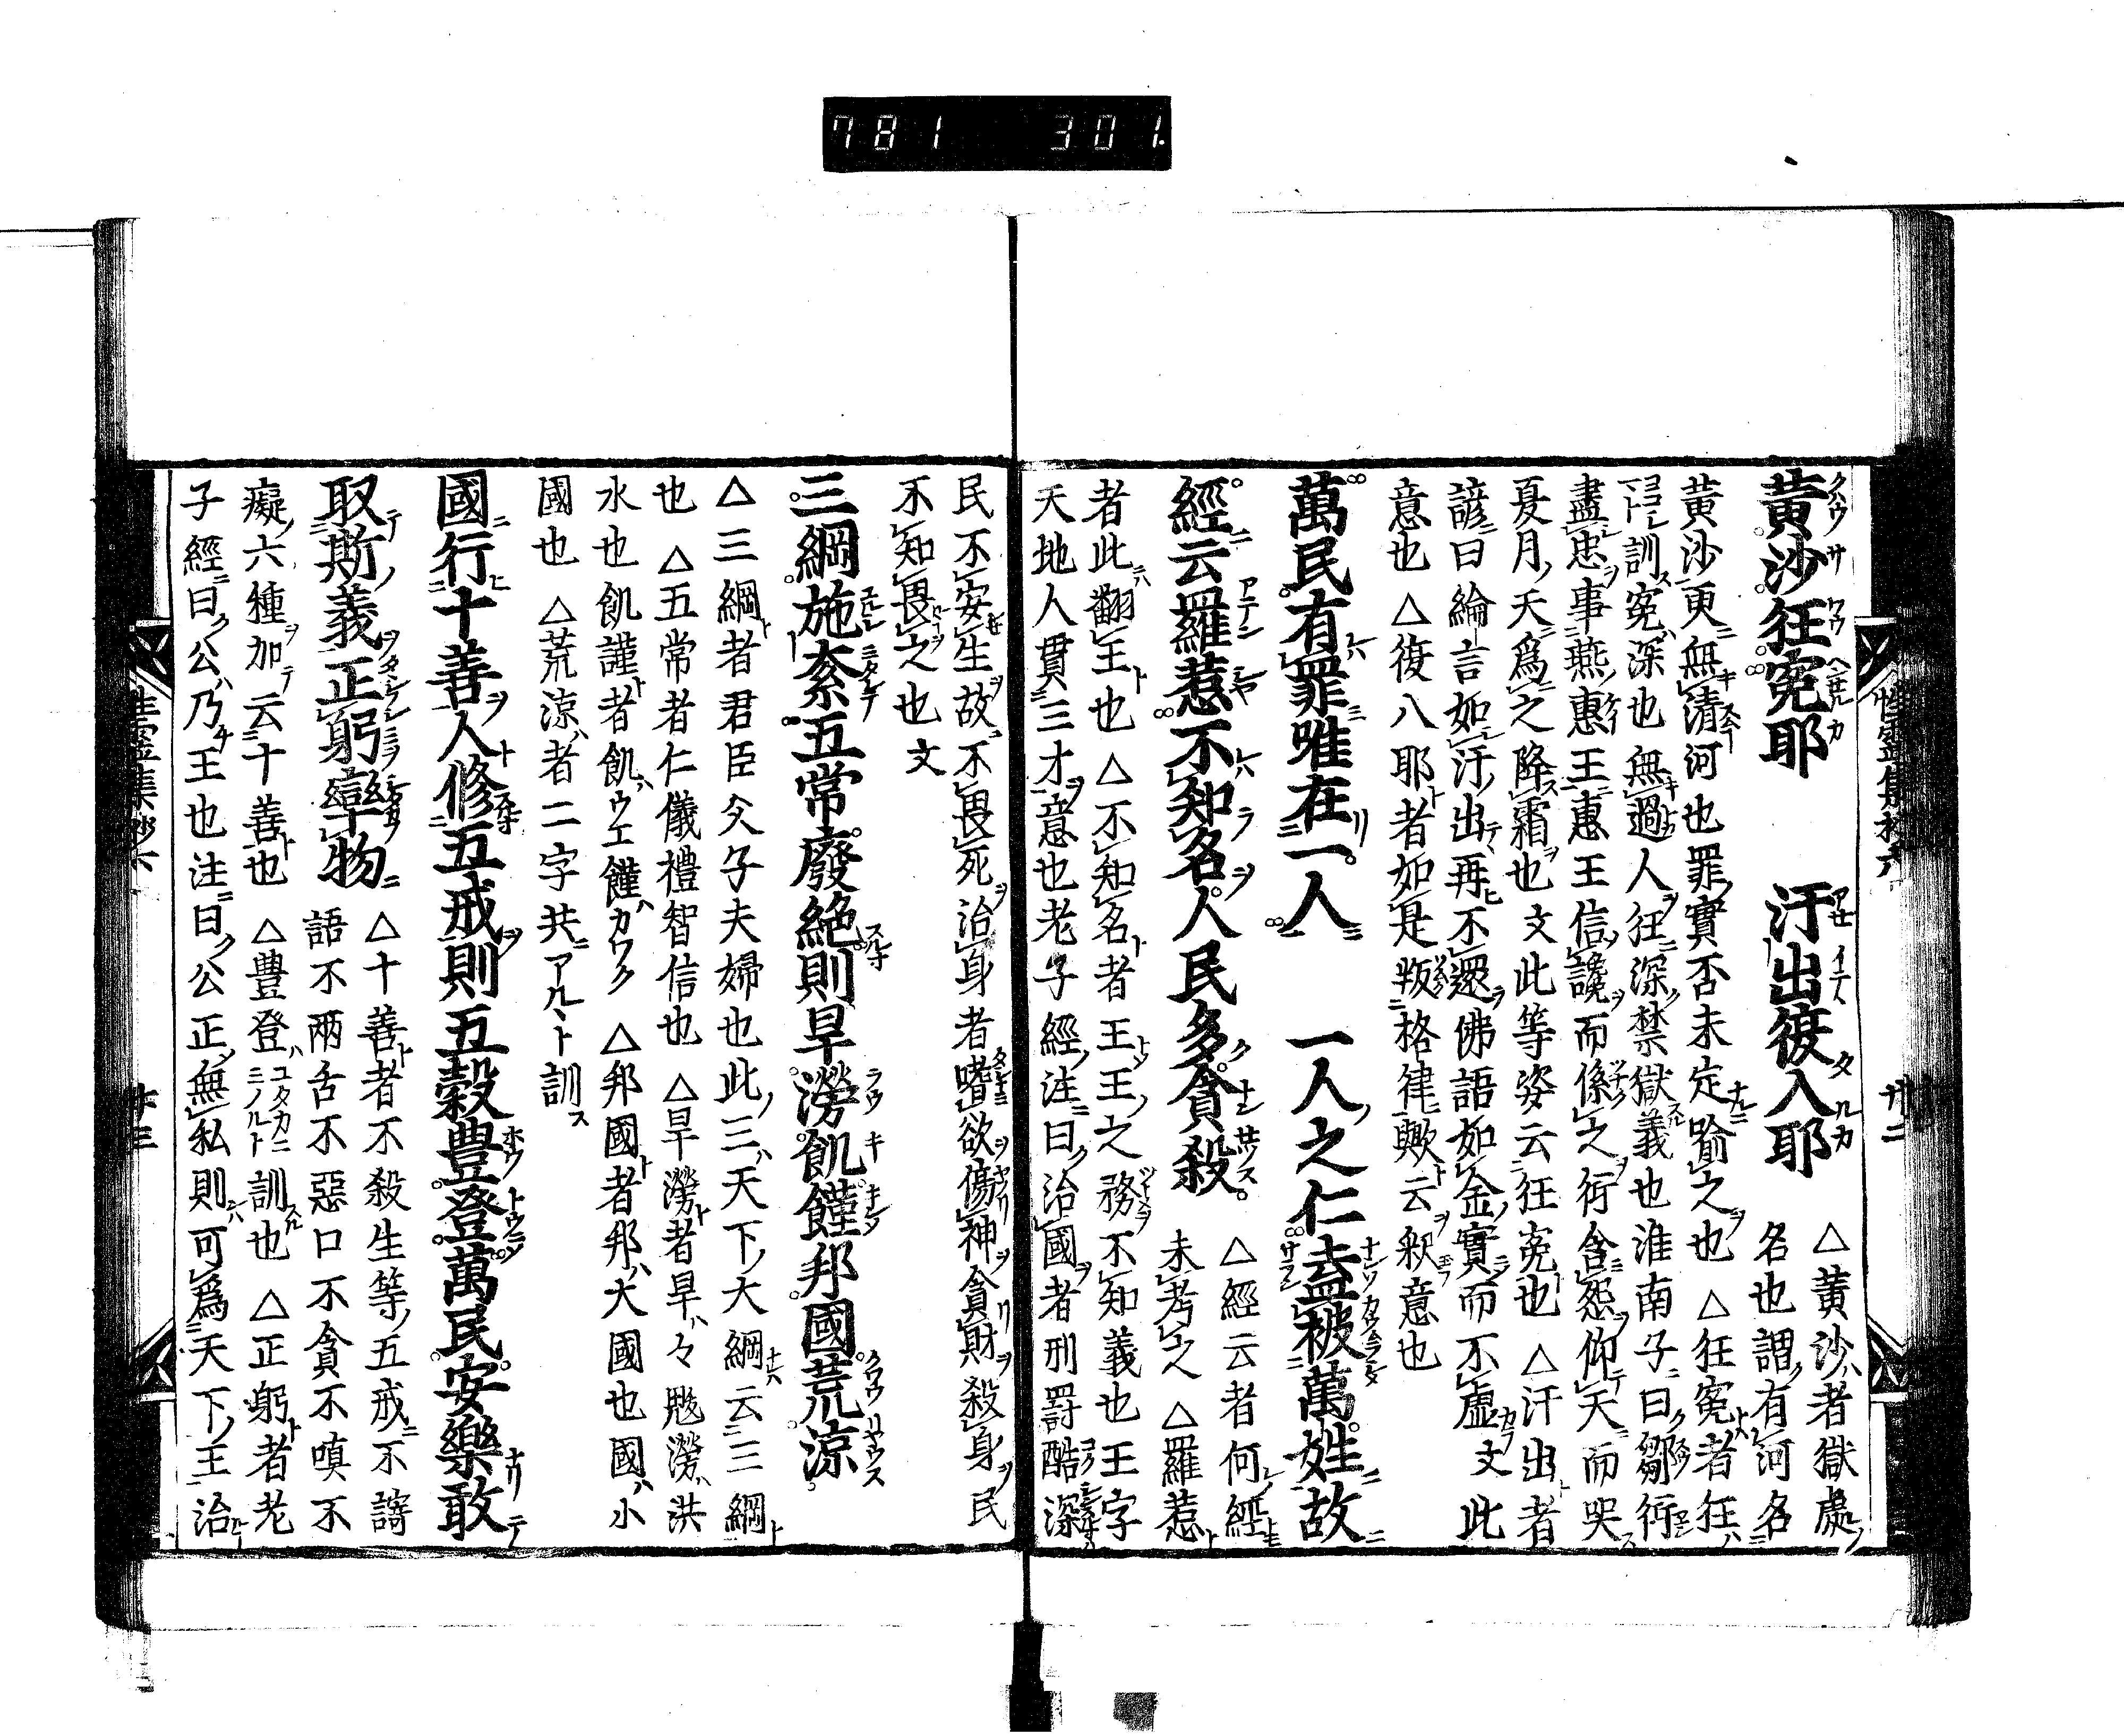 781 301.
黄沙狂寃耶 汗出復入耶 △黄沙者獄處
名也謂有河名
黄沙更無清河也罪實否未定喻之也△狂寃者狂
訓寃深也無過人狂深禁獄義也淮南子曰鄒衍
盡忠事燕惠王惠王信讒而係之衍含怨仰天而哭
夏月天爲之降霜也文此等姿云狂寃也△汗出者
諺曰綸言如汗出再不還佛語如金實而不虛文此
意也△復八耶者如是叛格律歟云釈意也
萬民有罪唯在一人 一人之仁盍被萬姓故
經云羅惹不知名人民多貪殺 △經云者何經
未考之△羅惹
者此翻王也△不知名者王王之務不知義也王字
天地人貫三才意也老子經注曰治國者刑罸酷深
民不安生故不畏死治身者嗜欲傷神貪財殺身民
不知畏之也文
三綱施紊五常廢絕則旱澇飢饉邦國荒涼
△三綱者君臣父子夫婦也此三天下大綱云三綱
也△五常者仁儀禮智信也△旱澇者旱々魃澇洪
水也飢謹者飢ウエ饉カワク△邦國者邦大國也國小
國也△荒涼者二字共アルヽト訓
國行十善人修五戒則五穀豊登萬民安樂敢
取斯義正躬率物 △十善者不殺生等五戒不謗
語不兩舌不惡口不貪不嗔不
癡六種加云十善也△豊登ユタカニミノルト訓也△正躬者老
子經曰公乃王也注曰公正無私則可爲天下王治
性靈集抄六 廿二
性靈集抄六 廿三